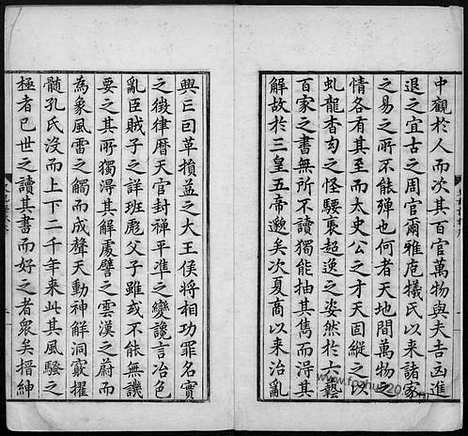 中觀於人而次其百官萬物與夫吉凶進
退之宜古之周官爾雅庖犧氏以來諸家
之易之所不能殫也何者天地間萬物之
情各有其至而太史公之才天固縱之以
虬龍杳幻之怪騕褭超逸之姿然於六藝
百家之書無所不讀獨能抽其雋而得其
解故於三皇五帝邈矣次夏商以來治亂
興亡因革損益之大王侯將相功罪名實
之徵律曆天官封禪平準之變讒言冶色
亂臣賊子之詳班彪父子雖或不能無譏
要之其所獨得其解處譬之雲漢之蔚而
為象風雷之觸而成聲天動神解洞竅擢
髓孔氏沒而上下二千年來此其風騷之
極者已世之讀其書而好之者眾矣搢紳